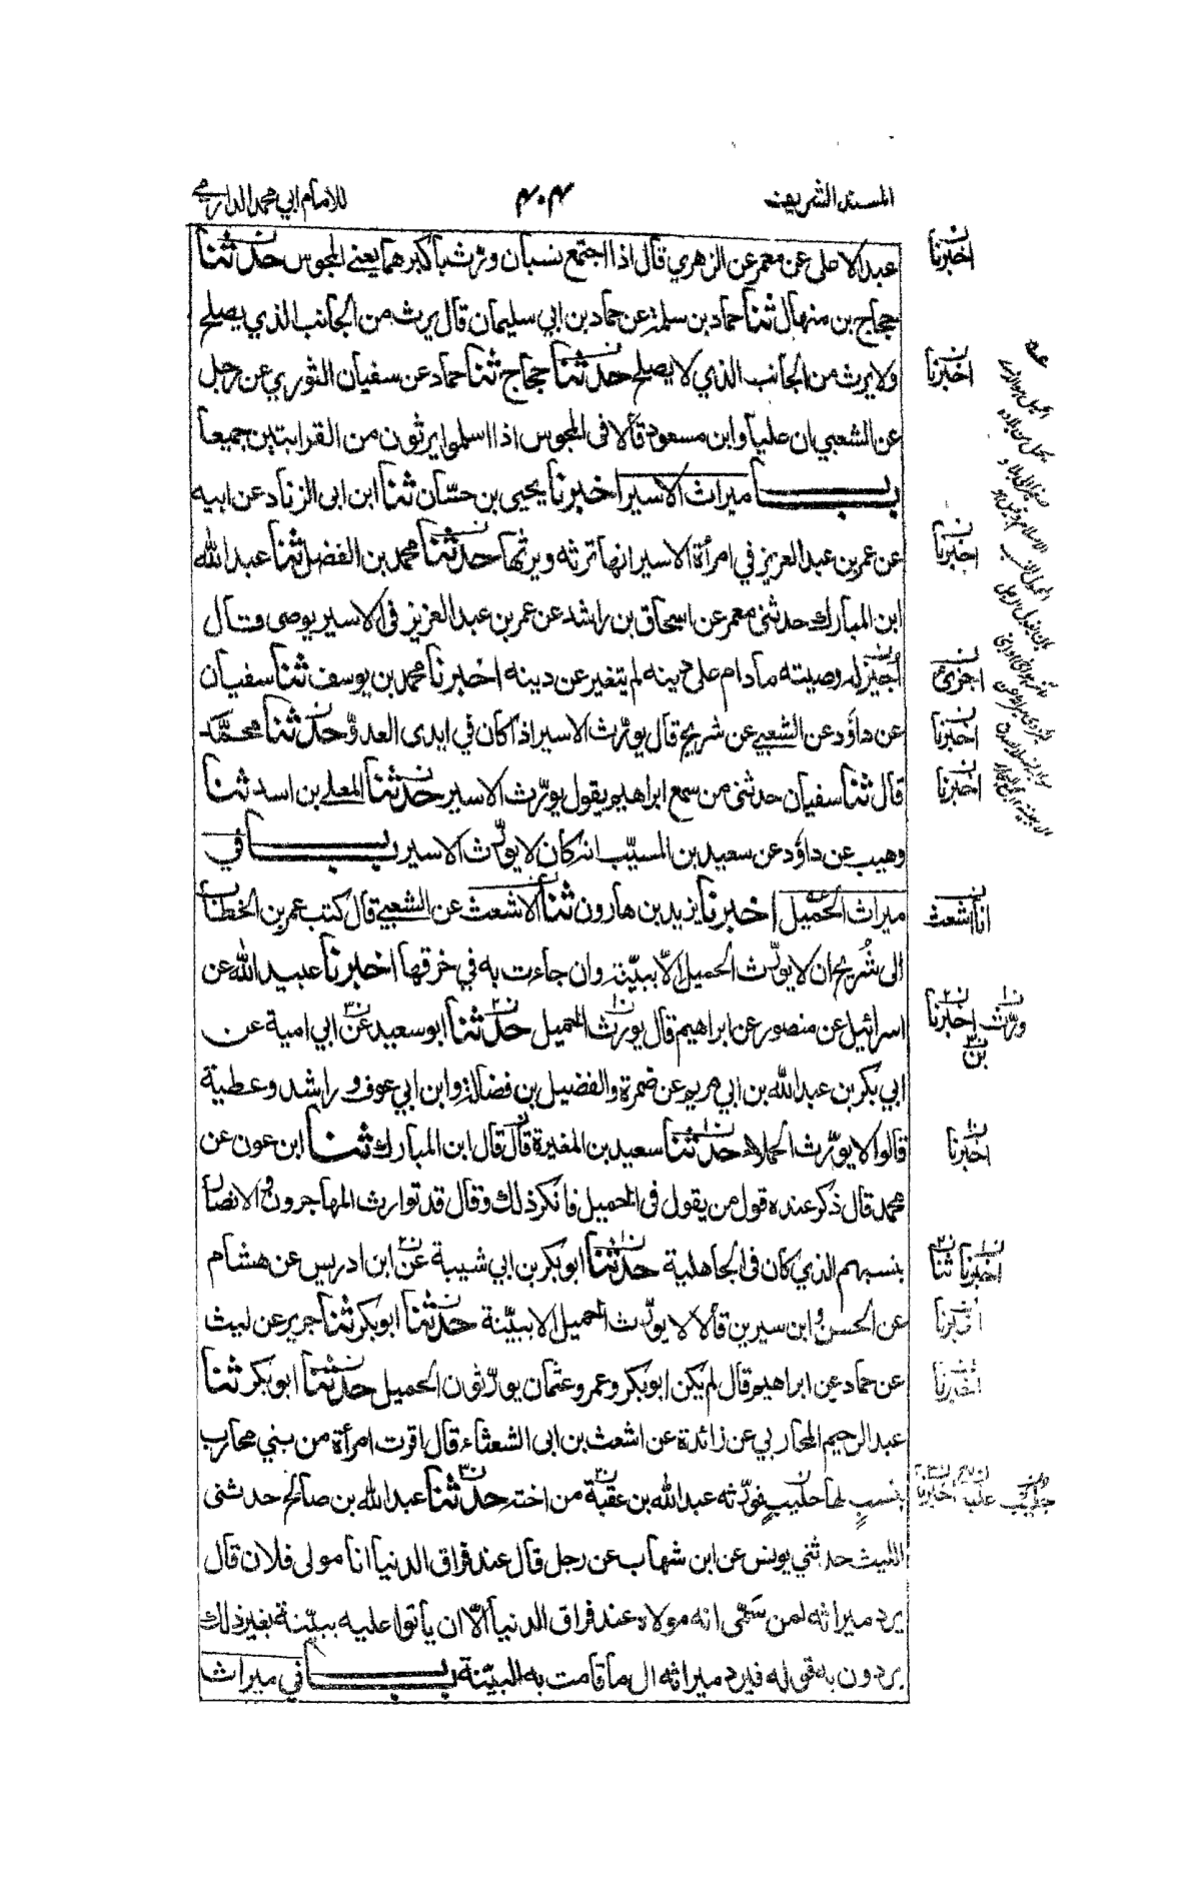 المسند الشريف ٤٠٤ للامام ابي محمد الدارمي
عبد الاعلى عن معمر عن الزهري قال اذا اجتمع نسبان ورث باكبرهما يعني المجوس حدثنا
حجاج بن منهال ثنا حماد بن سلمة عن حماد بن ابي سليمان قال يرث من الجانب الذي يصلح
ولا يرث من الجانب الذي لا يصلح حدثنا حجاج ثنا حماد عن سفيان الثوري عن رجل
عن الشعبي ان عليا وابن مسعود قالا في المجوس اذا اسلموا يرثون من القرابتين جميعا
باب ميراث الاسير اخبرنا يحيى بن حسّان ثنا ابن ابي الزناد عن ابيه
عن عمر بن عبد العزيز في امرأة الاسير انها ترثه ويرثها حدثنا محمد بن الفضل ثنا عبد الله
ابن المبارك حدثني معمر عن اسحاق بن راشد عن عمر بن عبد العزيز في الاسير يوصي قال
اجيز له وصيته ما دام على دينه لم يتغير عن دينه اخبرنا محمد بن يوسف ثنا سفيان
عن داؤد عن الشعبي عن شريح قال يورّث الاسير اذا كان في ايدي العدوّ حدثنا محمّد
قال ثنا سفيان حدثني من سمع ابراهيم يقول يورّث الاسير حدثنا المعلى بن اسد ثنا
وهيب عن داؤد عن سعيد بن المسيّب انه كان لا يورّث الاسير باب في
ميراث الحميل اخبرنا يزيد بن هارون ثنا الاشعث عن الشعبي قال كتب عمر بن الخطاب
الى شُريح ان لا يورّث الحميل الا ببيّنة وان جاءت به في خرقها اخبرنا عبيد الله عن
اسرائيل عن منصور عن ابراهيم قال يورث الحميل حدثنا ابو سعيد عن ابي امية عن
ابي بكر بن عبد الله بن ابي مريم عن ضمرة والفضيل بن فضالة وابن ابي عوف و راشد وعطية
قالوا لا يورّث الحملاء حدثنا سعيد بن المغيرة قال قال ابن المبارك ثنا ابن عون عن
محمد قال ذكر عنده قول من يقول في الحميل فانكر ذلك وقال قد توارث المهاجرون والانصار
بنسبهم الذي كان في الجاهلية حدثنا ابو بكر بن ابي شيبة عن ابن ادريس عن هشام
عن الحسن و ابن سيرين قالا لا يورّث الحميل الا ببيّنة حدثنا ابو بكر ثنا جرير عن ليث
عن حماد عن ابراهيم قال لم يكن ابو بكر وعمر وعثمان يورّثون الحميل حدثنا ابو بكر ثنا
عبد الرحيم المحاربي عن زائدة عن اشعث بن ابي الشعثاء قال اقرت امرأة من بني محارب
بنسب لها حليب فورّثه عبد الله بن عقبة من اخته حدثنا عبد الله بن صالح حدثني
الليث حدثني يونس عن ابن شهاب عن رجل قال عند فراق الدنيا انا مولى فلان قال
يرد ميراثه لمن سَمّى انه مولاه عند فراق الدنيا الّا ان يأتوا عليه ببيّنة بغير ذلك
يردون به قوله فيرد ميراثه الى ما قامت به البيّنة باب في ميراث
اخبرنا
اخبرنا
اخبرنا
اخبرنا
اخبرنا
انا اشعث
ورّث اخبرنا
بن
اخبرنا
اخبرنا ثنا
اخبرنا
اخبرنا